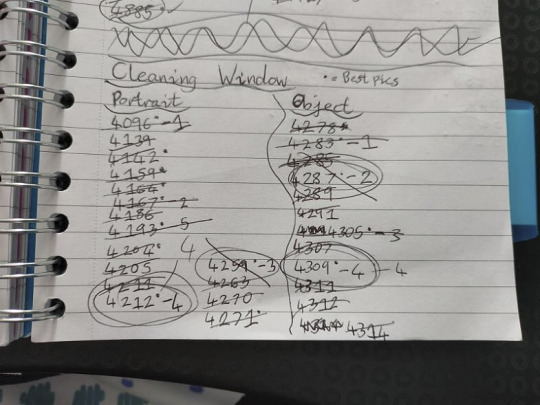 4885
Cleaning Window • = Best pics
Portrait
4096• - 1
4139
4142•
4159•
4166•
4167• - 2
4186
4193• - 5
4204•
4205
4211
4212• - 4
4
4259• - 3
4263
4270
4271•
Object
4278•
4283• - 1
4285
4287• - 2
4289
4291
4305• - 3
4307
4309• - 4 - 4
4311
4312
4314